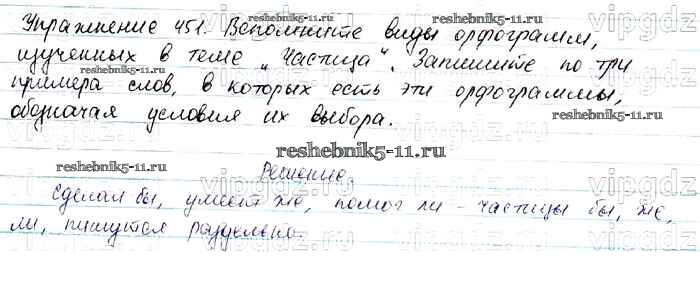 Упражнение 451. Вспомните виды орфограмм,
изученных в теме „Частица“. Запишите по три
примера слов, в которых есть эти орфограммы,
обозначая условия их выбора.
Решение
Сделал бы, умеет же, помог ли - частицы бы, же,
ли, пишутся раздельно.
reshebnik5-11.ru
reshebnik5-11.ru
reshebnik5-11.ru
reshebnik5-11.ru
reshebnik5-11.ru
reshebnik5-11.ru
vipgdz
vipgdz
vipgdz
vipgdz